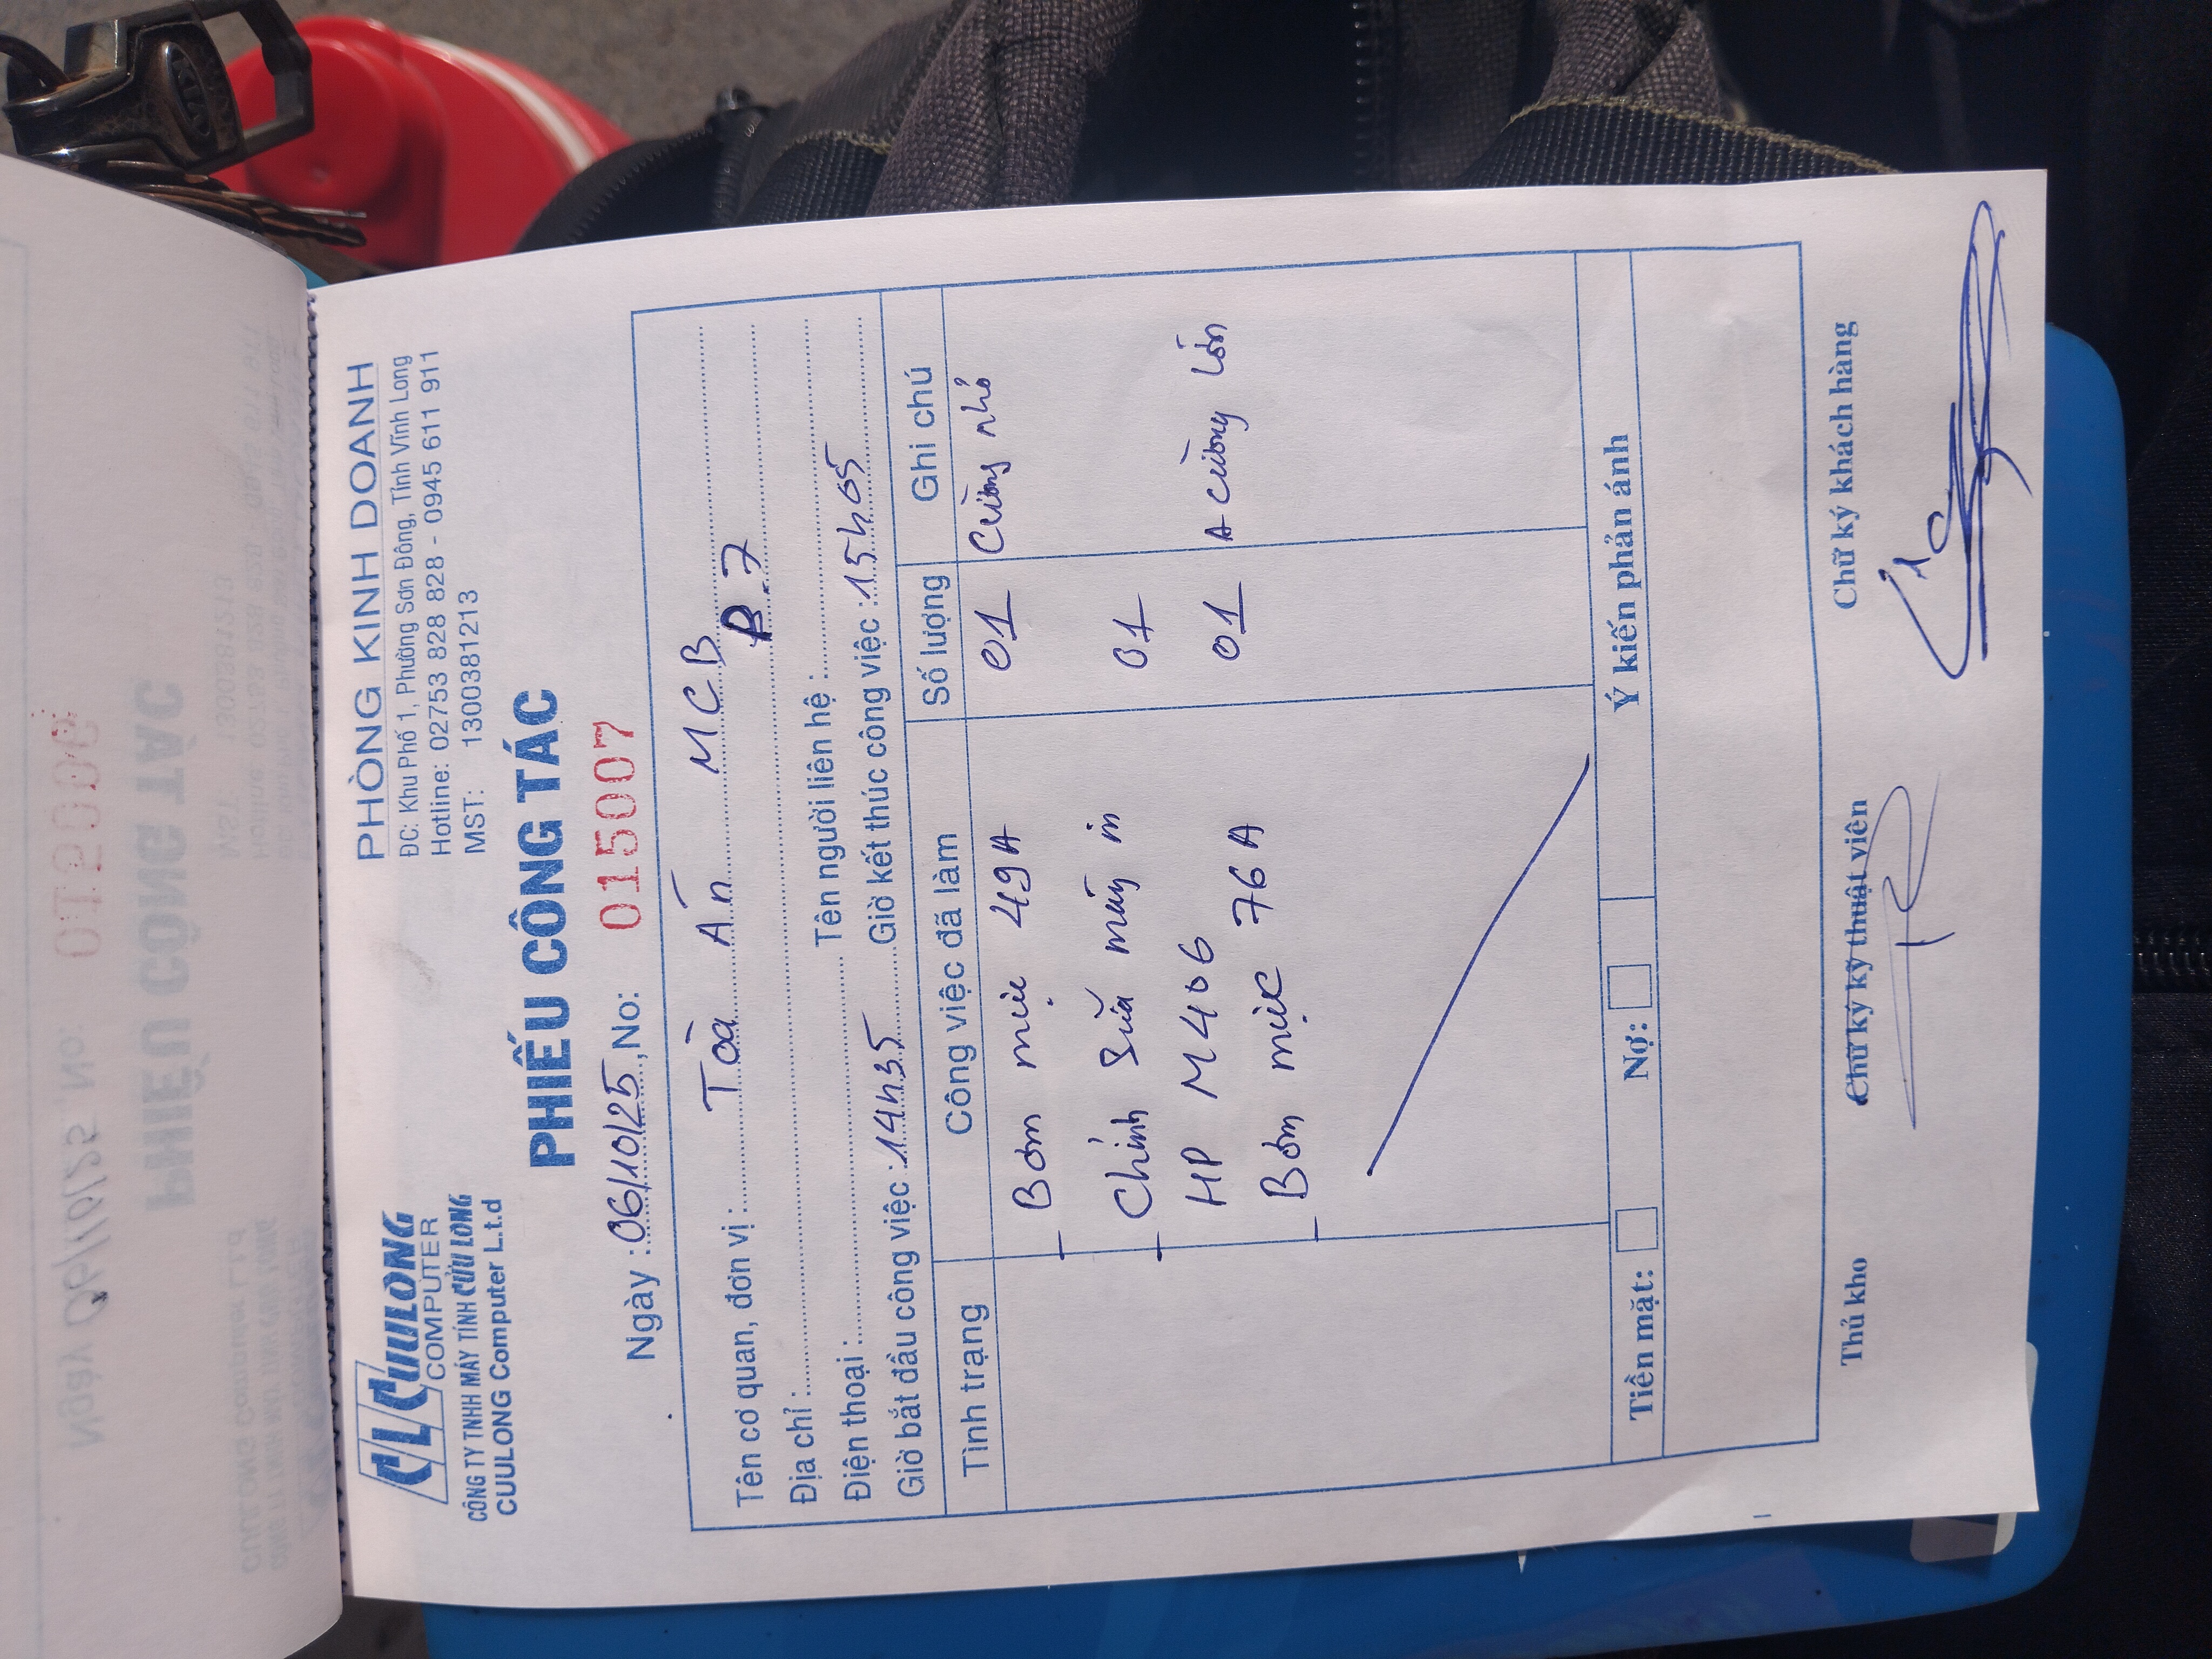 CL CUULONG
COMPUTER
CÔNG TY TNHH MÁY TÍNH CỬU LONG
CUULONG Computer L.t.d
PHÒNG KINH DOANH
ĐC: Khu Phố 1, Phường Sơn Đông, Tỉnh Vĩnh Long
Hotline: 02753 828 828 - 0945 611 911
MST: 1300381213
PHIẾU CÔNG TÁC
Ngày : 06/10/25, No: 015007
Tên cơ quan, đơn vị: Tòa Án MCB
Địa chỉ : P.7
Điện thoại : Tên người liên hệ :
Giờ bắt đầu công việc : 14h35 Giờ kết thúc công việc : 15h05
Tình trạng Công việc đã làm Số lượng Ghi chú
- Bơm mực 49A 01 Cường nhỏ
- Chỉnh sửa máy in 01
HP M406
- Bơm mực 76A 01 A Cường lớn
Tiền mặt: Nợ: Ý kiến phản ánh
Thủ kho Chữ ký kỹ thuật viên Chữ ký khách hàng